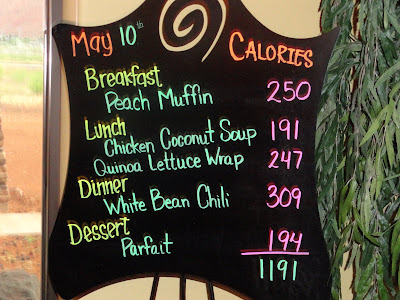 May 10th CALORIES
Breakfast
Peach Muffin 250
Lunch
Chicken Coconut Soup 191
Quinoa Lettuce Wrap 247
Dinner
White Bean Chili 309
Dessert
Parfait 194
1191